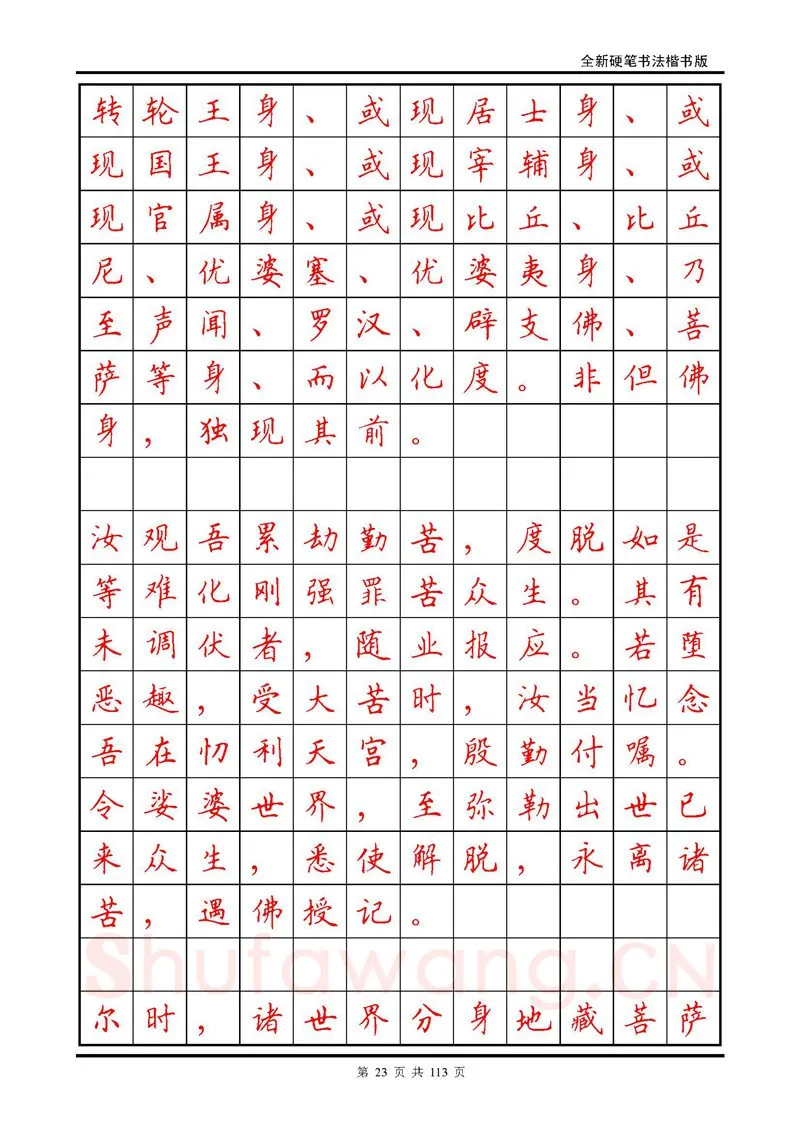 全新硬笔书法楷书版
转轮王身、或现居士身、或
现国王身、或现宰辅身、或
现官属身、或现比丘、比丘
尼、优婆塞、优婆夷身、乃
至声闻、罗汉、辟支佛、菩
萨等身、而以化度。非但佛
身，独现其前。
汝观吾累劫勤苦，度脱如是
等难化刚强罪苦众生。其有
未调伏者，随业报应。若堕
恶趣，受大苦时，汝当忆念
吾在忉利天宫，殷勤付嘱。
令娑婆世界，至弥勒出世已
来众生，悉使解脱，永离诸
苦，遇佛授记。
Shufawang.CN
尔时，诸世界分身地藏菩萨
第 23 页 共 113 页